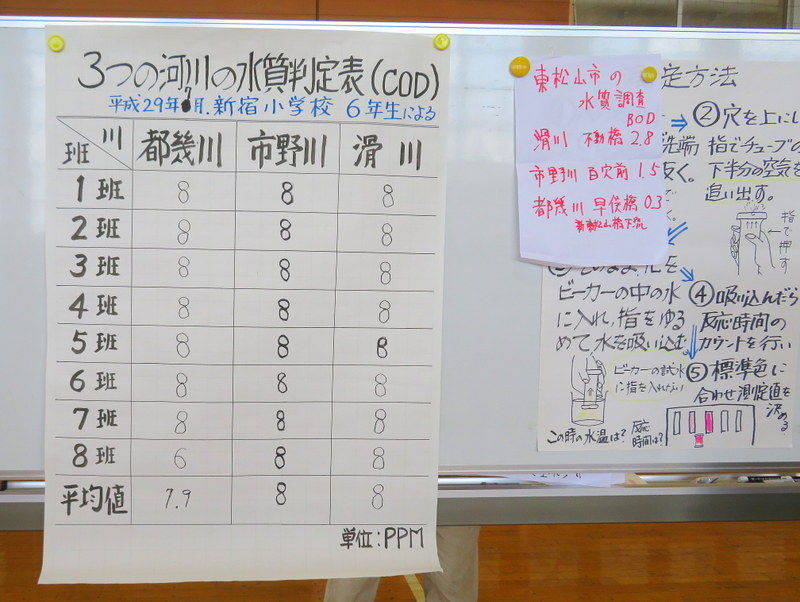 3つの河川の水質判定表(COD)
平成29年7月.新宿小学校 6年生による
川
班
都幾川 市野川 滑川
1班 8 8 8
2班 8 8 8
3班 8 8 8
4班 8 8 8
5班 8 8 8
6班 8 8 8
7班 8 8 8
8班 6 8 8
平均値 7.9 8 8
単位:PPM
東松山市の
水質調査
BOD
滑川 不動橋 2.8
市野川 百穴前 1.5
都幾川 早俣橋 0.3
定方法
②穴を上にし
先端 指でチューブの
抜く。 下半分の空気を
追い出す。
指で押す
ビーカーの中の水
に入れ、指をゆる
めて水を吸い込む。
④吸い込んだら
反応時間の
カウントを行い
⑤標準色に
合わせ測定値を
決める
ビーカーの試水
に指を入れない
この時の水温は?
反応
時間は?